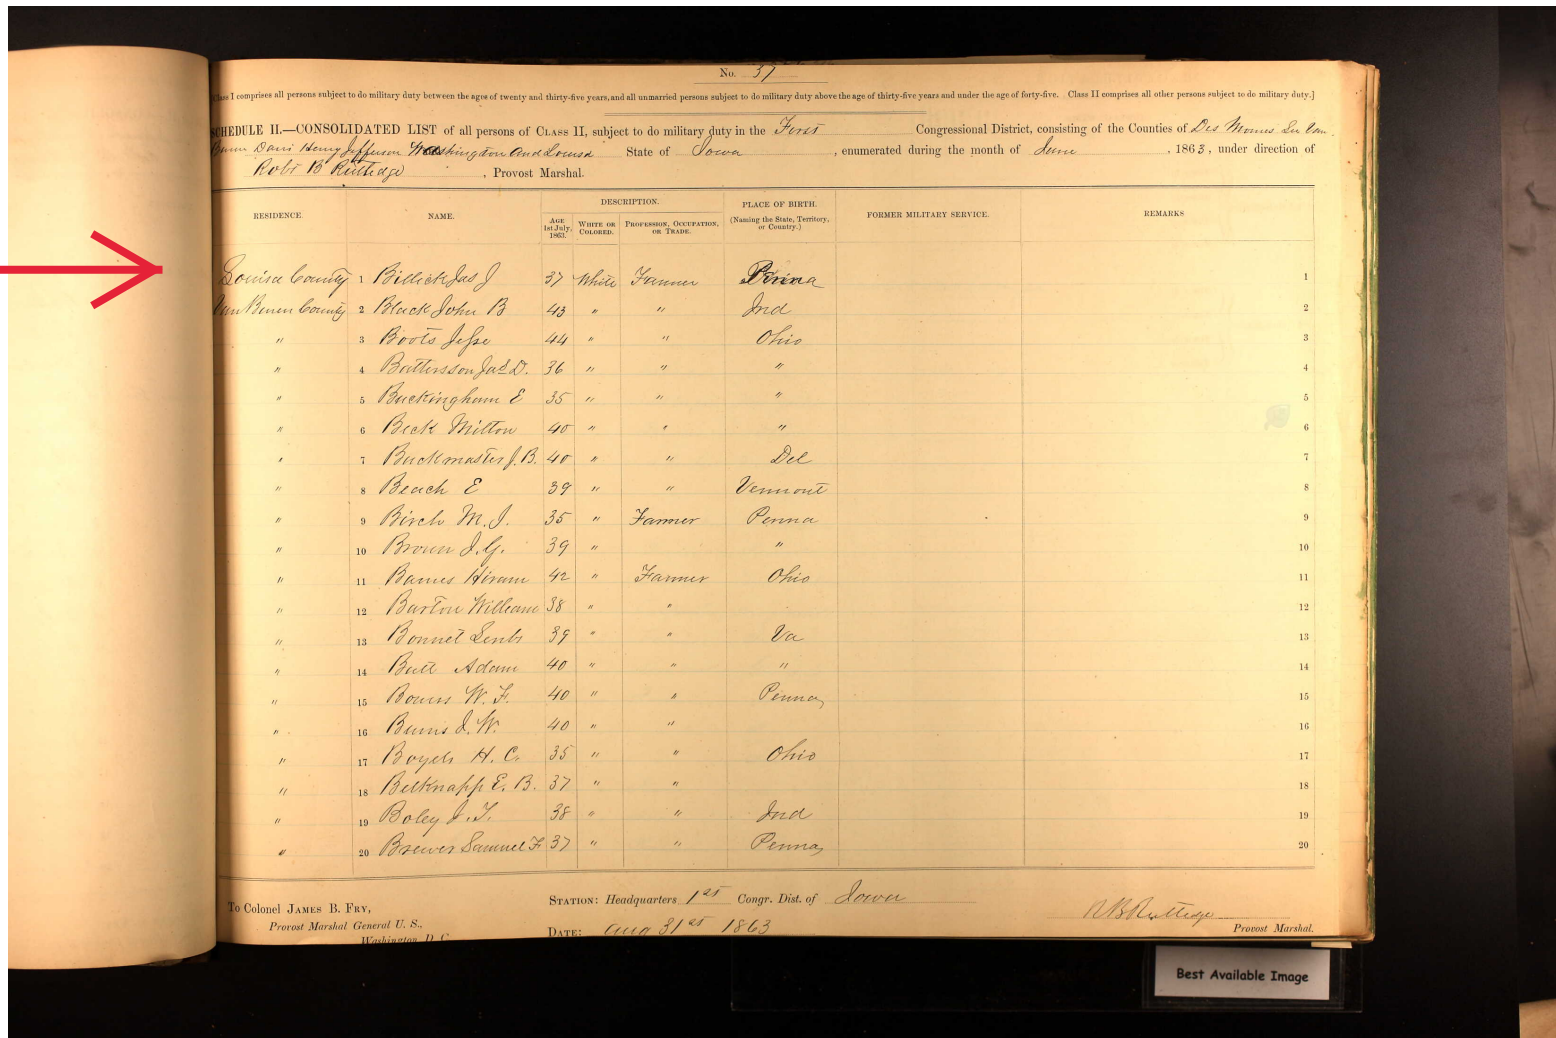 No. 37
Class I comprises all persons subject to do military duty between the ages of twenty and thirty-five years, and all unmarried persons subject to do military duty above the age of thirty-five years and under the age of forty-five. Class II comprises all other persons subject to do military duty.]
SCHEDULE II.—CONSOLIDATED LIST of all persons of CLASS II, subject to do military duty in the First Congressional District, consisting of the Counties of Des Moines Lee Van
Buren Davis Henry Jefferson Washington And Louisa State of Iowa, enumerated during the month of June, 1863, under direction of
Robt B Rutledge, Provost Marshal.
RESIDENCE. NAME. DESCRIPTION. PLACE OF BIRTH. FORMER MILITARY SERVICE. REMARKS
AGE 1st July, 1863. WHITE OR COLORED. PROFESSION, OCCUPATION, OR TRADE. (Naming the State, Territory, or Country.)
Louisa County 1 Billick Jas J 37 White Farmer Penna 1
Van Buren County 2 Black John B 43 " " Ind 2
" 3 Boots Jesse 44 " " Ohio 3
" 4 Battersson Jas D. 36 " " " 4
" 5 Buckingham E 35 " " " 5
" 6 Beck Milton 40 " " " 6
" 7 Buckmaster J. B. 40 " " Del 7
" 8 Beach E 39 " " Vermont 8
" 9 Birch M. J. 35 " Farmer Penna 9
" 10 Brown J. G. 39 " " 10
" 11 Barnes Hiram 42 " Farmer Ohio 11
" 12 Barton William 38 " " 12
" 13 Bonnet 39 " " Va 13
" 14 Butt Adam 40 " " " 14
" 15 Bowers W. F. 40 " " Penna 15
" 16 Burns J. W. 40 " " 16
" 17 Boyels H. C. 35 " " Ohio 17
" 18 Belknapp E. B. 37 " " 18
" 19 Boley J. T. 38 " " Ind 19
" 20 Brewer Samuel F 37 " " Penna 20
To Colonel JAMES B. FRY,
Provost Marshal General U. S.,
Washington, D. C.
STATION: Headquarters 1st Congr. Dist. of Iowa
DATE: Aug 31st 1863
R B Rutledge
Provost Marshal.
Best Available Image